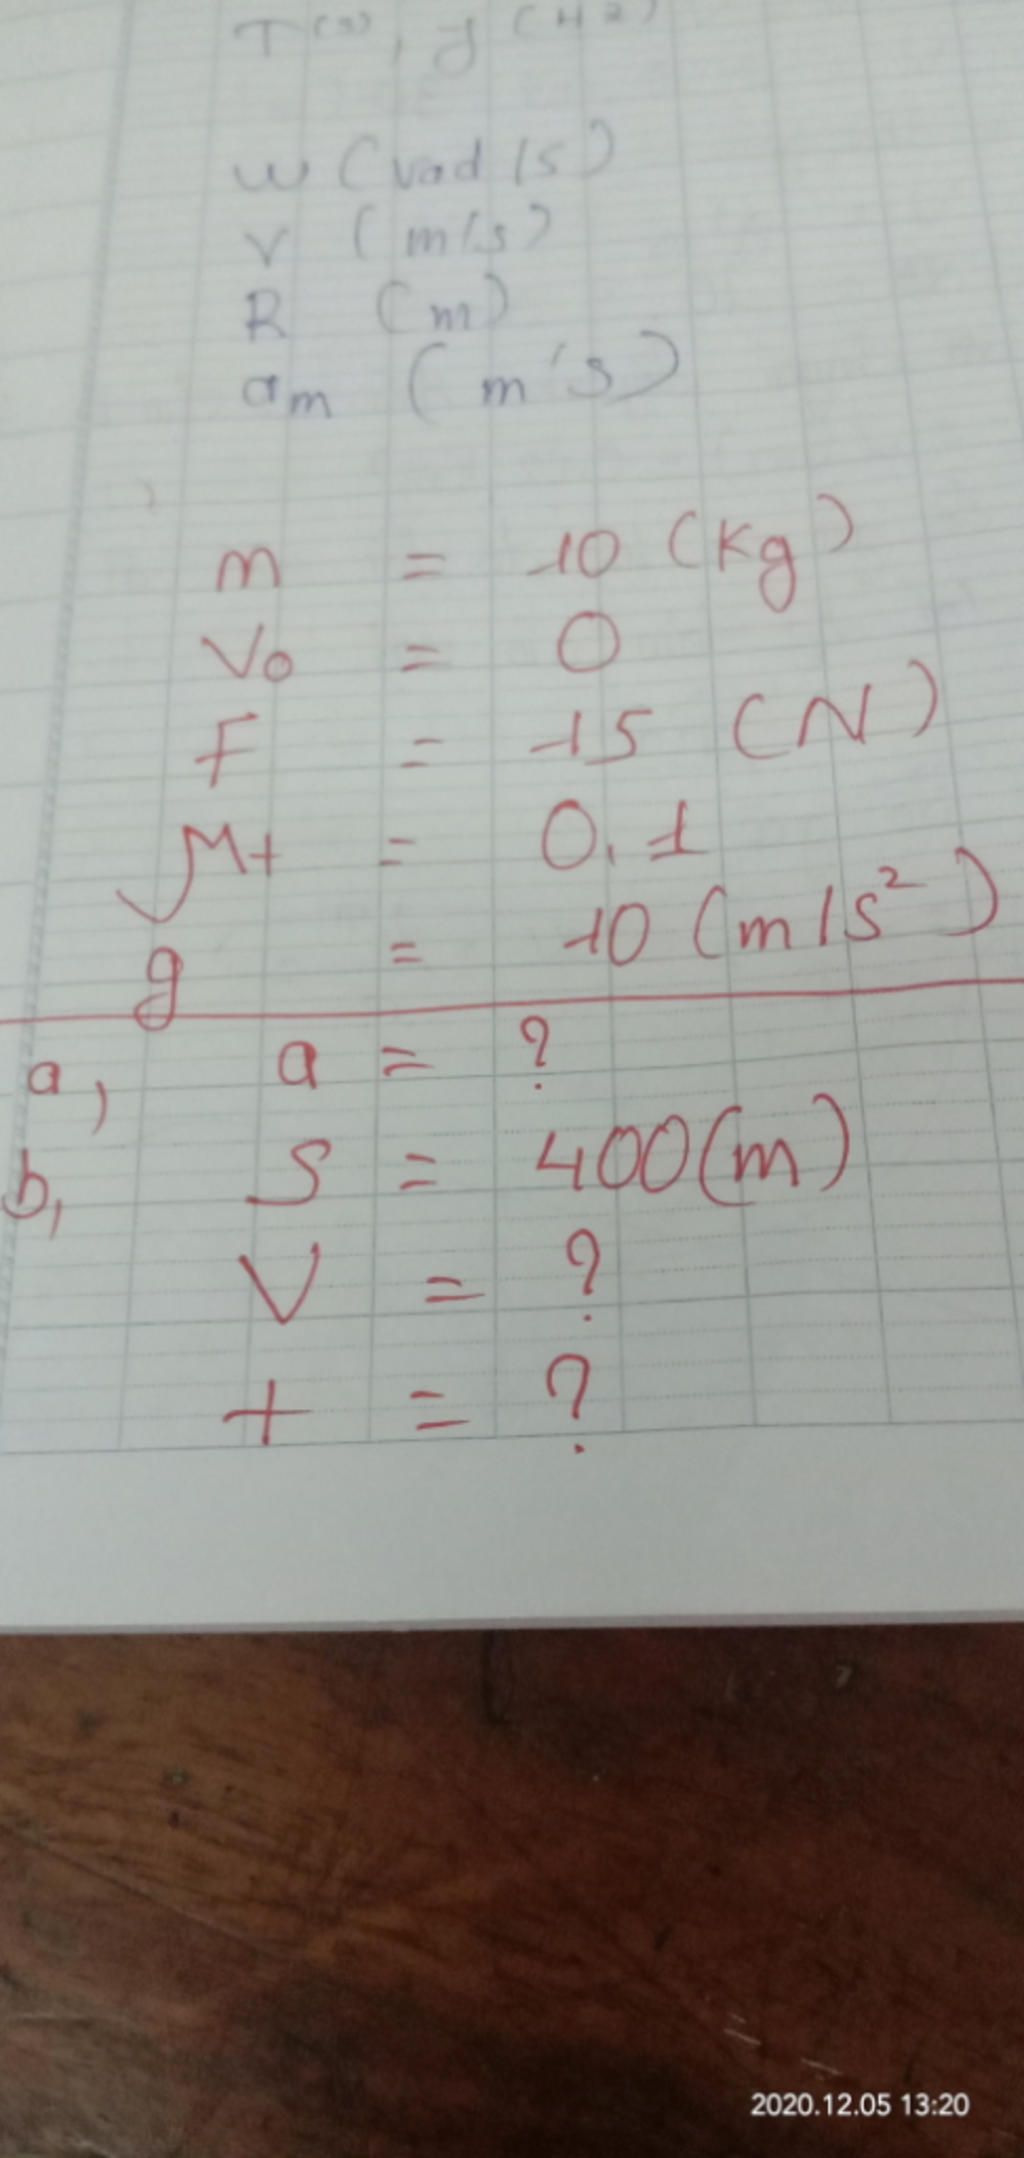 T (s), f (Hz)
w (rad/s)
v (m/s)
R (m)
a_m (m/s)
m = 10 (Kg)
V₀ = 0
F = 15 (N)
μ_t = 0,1
g = 10 (m/s²)
a, a = ?
b, S = 400(m)
V = ?
t = ?
2020.12.05 13:20